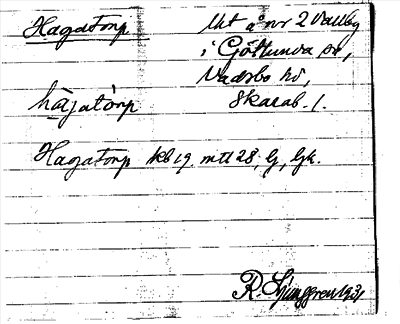 Hagatorp
Utt å nr 2 Vallby
i Götlunda sn,
Vadsbo hd,
hàgatòrp Skarab. l.
Hagatorp kb 19. mtl 28. G, Gk.
R. Ljunggren 1931